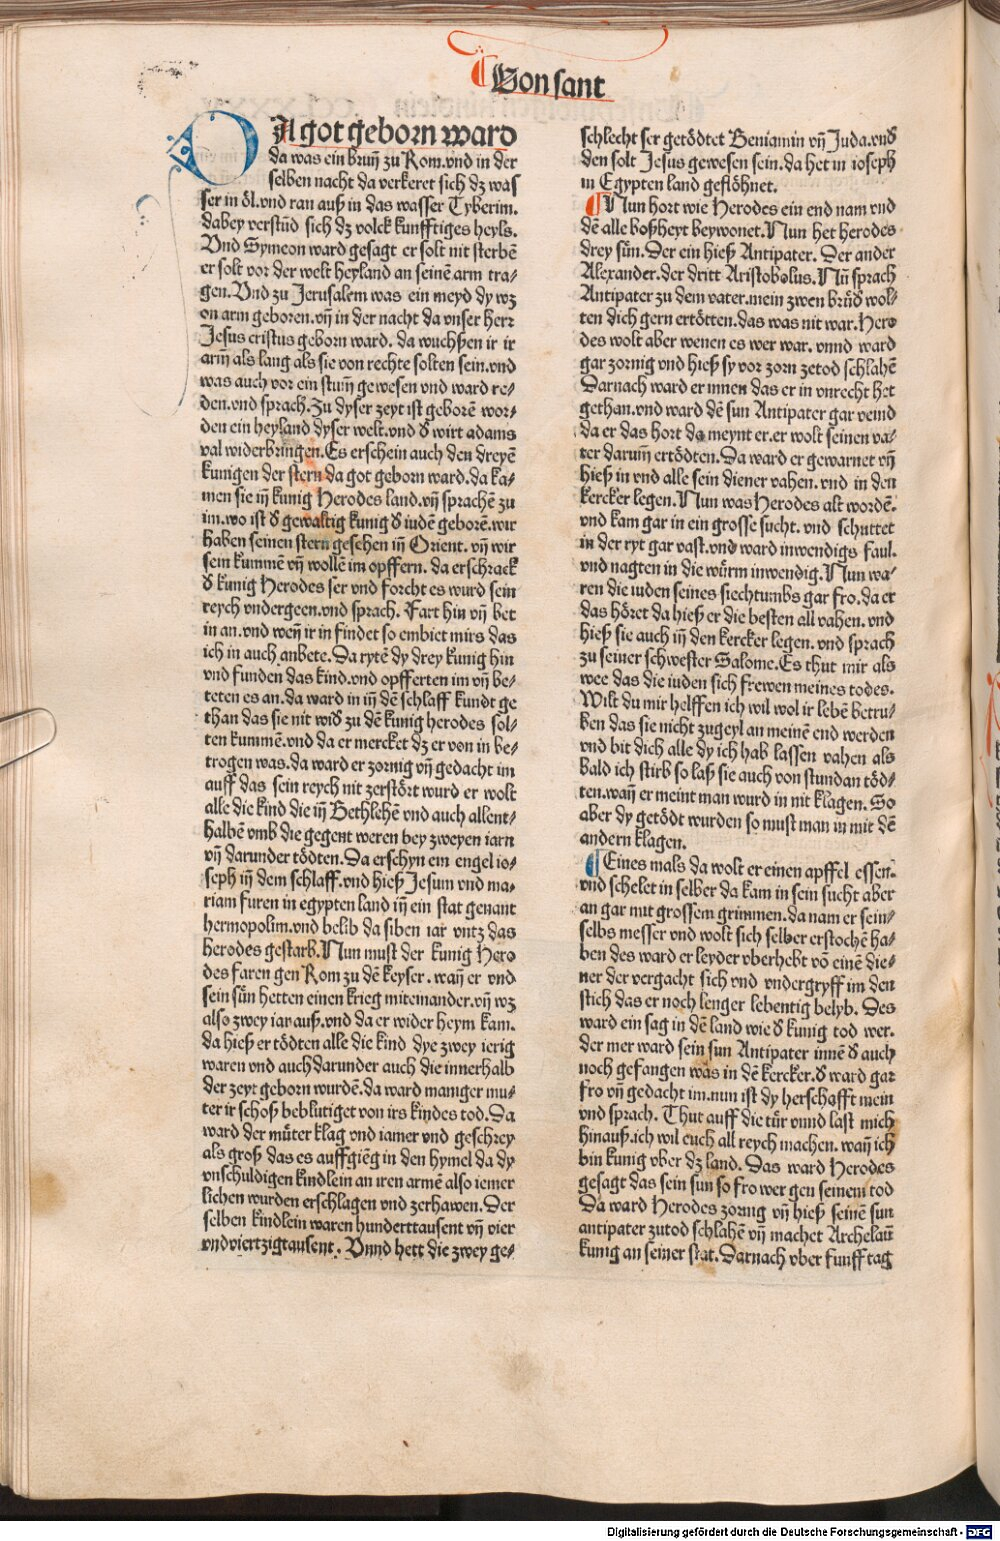 Von sant
DA got geborn ward
da was ein brun̄ zu Rom.vnd in der
selben nacht da verkeret sich dz was
ser in öl.vnd ran auß in das wasser Tyberim.
dabey verstūd sich dz volck kunfftiges heyls.
Vnd Symeon ward gesagt er solt nit sterbē
er solt vor der welt heyland an seinē arm tra⸗
gen.Vnd zu Jerusalem was ein meyd dy wz
on arm geboren.vn̄ in der nacht da vnser herr
Jesus cristus geborn ward. da wuchßen ir ir
arm̄ als lang als sie von rechte solten sein.vnd
was auch vor ein stum̄ gewesen vnd ward re⸗
den.vnd sprach.Zu dyser zeyt ist geborē wor⸗
den ein heyland dyser welt.vnd d̓ wirt adams
val widerbringen.Es erschein auch den dreyē
kunigen der stern da got geborn ward.da ka⸗
men sie in̄ kunig Herodes land.vn̄ sprachē zu
im.wo ist d̓ gewaltig kunig d̓ iudē geborē.wir
haben seinen stern gesehen in̄ Orient. vn̄ wir
sein kummē vn̄ wollē im opffern. da erschrack
d̓ kunig Herodes ser vnd forcht es wurd sein
reych vndergeen.vnd sprach. Fart hin vn̄ bet
in an.vnd wen̄ ir in findet so embiet mirs das
ich in auch anbete.Da rytē dy drey kunig hin
vnd funden das kind.vnd opfferten im vn̄ be⸗
teten es an.da ward in in̄ dē schlaff kundt ge
than das sie nit wid̓ zu dē kunig herodes sol⸗
ten kummē.vnd da er mercket dz er von in be⸗
trogen was.da ward er zornig vn̄ gedacht im
auff das sein reych nit zerstört wurd er wolt
alle die kind die in̄ Bethlehē vnd auch allent⸗
halbē vmb die gegent weren bey zweyen iarn
vn̄ darunder tödten.Da erschyn ein engel io⸗
seph in̄ dem schlaff.vnd hieß Jesum vnd ma⸗
riam furen in egypten land in̄ ein stat genant
hermopolim.vnd belib da siben iar vntz das
herodes gestarb.Nun must der kunig Hero
des faren gen Rom zu dē keyser. wan̄ er vnd
sein sün hetten einen krieg miteinander.vn̄ wz
also zwey iar auß.vnd da er wider heym kam.
da hieß er tödten alle die kind dye zwey ierig
waren vnd auch darunder auch die innerhalb
der zeyt geborn wurdē.da ward maniger mu⸗
ter ir schoß beblutiget von irs kindes tod.Da
ward der müter klag vnd iamer vnd geschrey
als groß das es auffgieēg in den hymel da dy
vnschuldigen kindlein an iren armē also iemer
lichen wurden erschlagen vnd zerhawen.Der
selben kindlein waren hunderttausent vn̄ vier
vndviertzigtausent. Vnnd hett die zwey ge⸗
schlecht ser getödtet Beniamin vn̄ Juda.vnd̓
den solt Jesus gewesen sein.da het in ioseph
in Egypten land geflöhnet.
Nun hort wie Herodes ein end nam vnd
dē alle boßheyt beywonet.Nun het herodes
drey sün.Der ein hieß Antipater. Der ander
Alexander.der dritt Aristobolus.Nū sprach
Antipater zu dem vater.mein zwen brüd̓ wol⸗
ten dich gern ertötten.das was nit war.Hero
des wolt aber wenen es wer war. vnnd ward
gar zornig vnd hieß sy vor zorn zetod schlahē
Darnach ward er innen das er in vnrecht het
gethan.vnd ward dē sun Antipater gar veind
da er das hort da meynt er.er wolt seinen va⸗
ter darum̄ ertödten.Da ward er gewarnet vn̄
hieß in vnd alle sein diener vahen. vnd in den
kercker legen.Nun was Herodes alt wordē.
vnd kam gar in ein grosse sucht. vnd schuttet
in der ryt gar vast.vnd ward inwendigs faul.
vnd nagten in die würm inwendig.Nun wa⸗
ren die iuden seines siechtumbs gar fro.da er
das höret da hieß er die besten all vahen. vnd
hieß sie auch in̄ den kercker legen. vnd sprach
zu seiner schwester Salome.Es thut mir als
wee das die iuden sich frewen meines todes.
Wilt du mir helffen ich wil wol ir lebē betru⸗
ben das sie nicht zugeyl an meinē end werden
vnd bit dich alle dy ich hab lassen vahen als
bald ich stirb so laß sie auch von stundan töd⸗
ten.wan̄ er meint man wurd in nit klagen. So
aber dy getödt wurden so must man in mit dē
andern klagen.
Eines mals da wolt er einen apffel essen.
vnd schelet in selber da kam in sein sucht aber
an gar mit grossem grimmen.da nam er sein⸗
selbs messer vnd wolt sich selber erstochē ha⸗
ben des ward er leyder vberhebt vō einē die⸗
ner der vergacht sich vnd vndergryff im den
stich das er noch lenger lebentig belyb. Des
ward ein sag in dē land wie d̓ kunig tod wer.
der mer ward sein sun Antipater innē d̓ auch
noch gefangen was in dē kercker.d̓ ward gar
fro vn̄ gedacht im.nun ist dy herschafft mein
vnd sprach. Thut auff die tür vnnd last mich
hinauß.ich wil euch all reych machen. wan̄ ich
bin kunig vber dz land. Das ward Herodes
gesagt das sein sun so fro wer gen seinem tod
Da ward Herodes zornig vn̄ hieß seinē sun
antipater zutod schlahē vn̄ machet Archelaū
kunig an seiner stat.Darnach vber funff tag
Digitalisierung gefördert durch die Deutsche Forschungsgemeinschaft - DFG